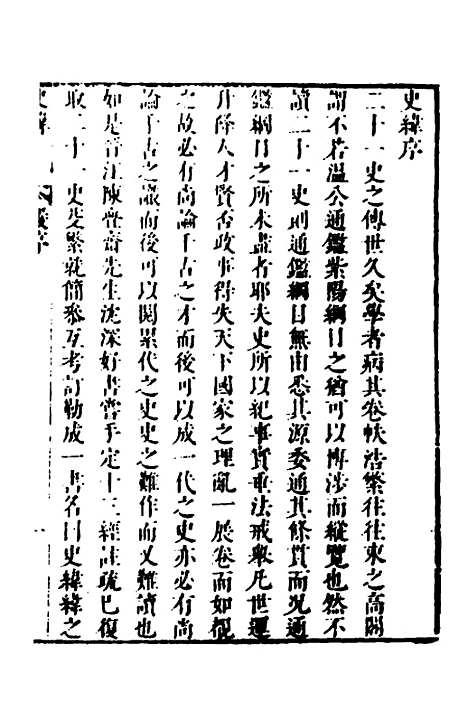 史緯序
二十一史之傳世久矣學者病其卷帙浩繁往往束之高閣
謂不若溫公通鑑紫陽綱目之猶可以博涉而縱覽也然不
讀二十一史則通鑑綱目無由悉其源委通其條貫而況通
鑑綱目之所未盡者耶夫史所以紀事實垂法戒舉凡世運
升降人才賢否政事得失天下國家之理亂一展卷而如覩
之故必有尚論千古之才而後可以成一代之史亦必有尚
論千古之識而後可以閱累代之史史之難作而又難讀也
如是晉江陳齋先生沈深好書嘗手定十三經註疏已復
取二十一史芟繁就簡參互考訂勒成一書名曰史緯緯之
史緯 序